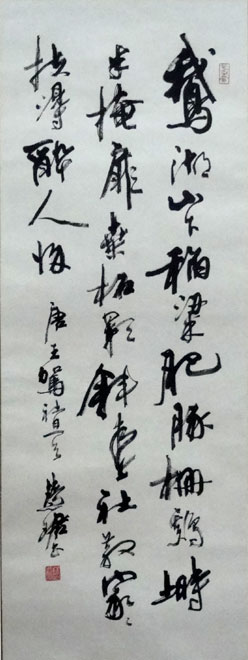 鵝湖山下稻粱肥豚栅鷄塒
半掩扉桑柘影斜春社散家々
扶得醉人归 唐王駕社日